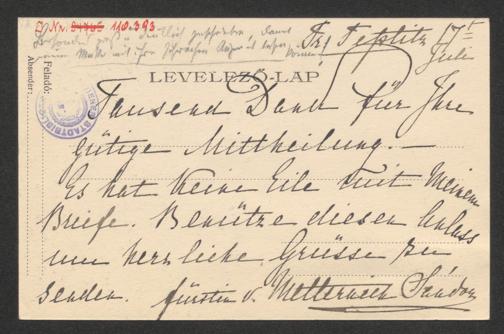 J. Nr. 110.393
Trz Teplitz 17t
Juli
LEVELEZŐ-LAP
Feladó:
Absender:
STADTBIBL
Tausend Dank für Ihre
gütige Mittheilung. —
Es hat keine Eile mit Meinem
Briefe. Benütze diesen Anlass
um herzliche Grüsse zu
senden. Fürstin v. Metternich Sándor